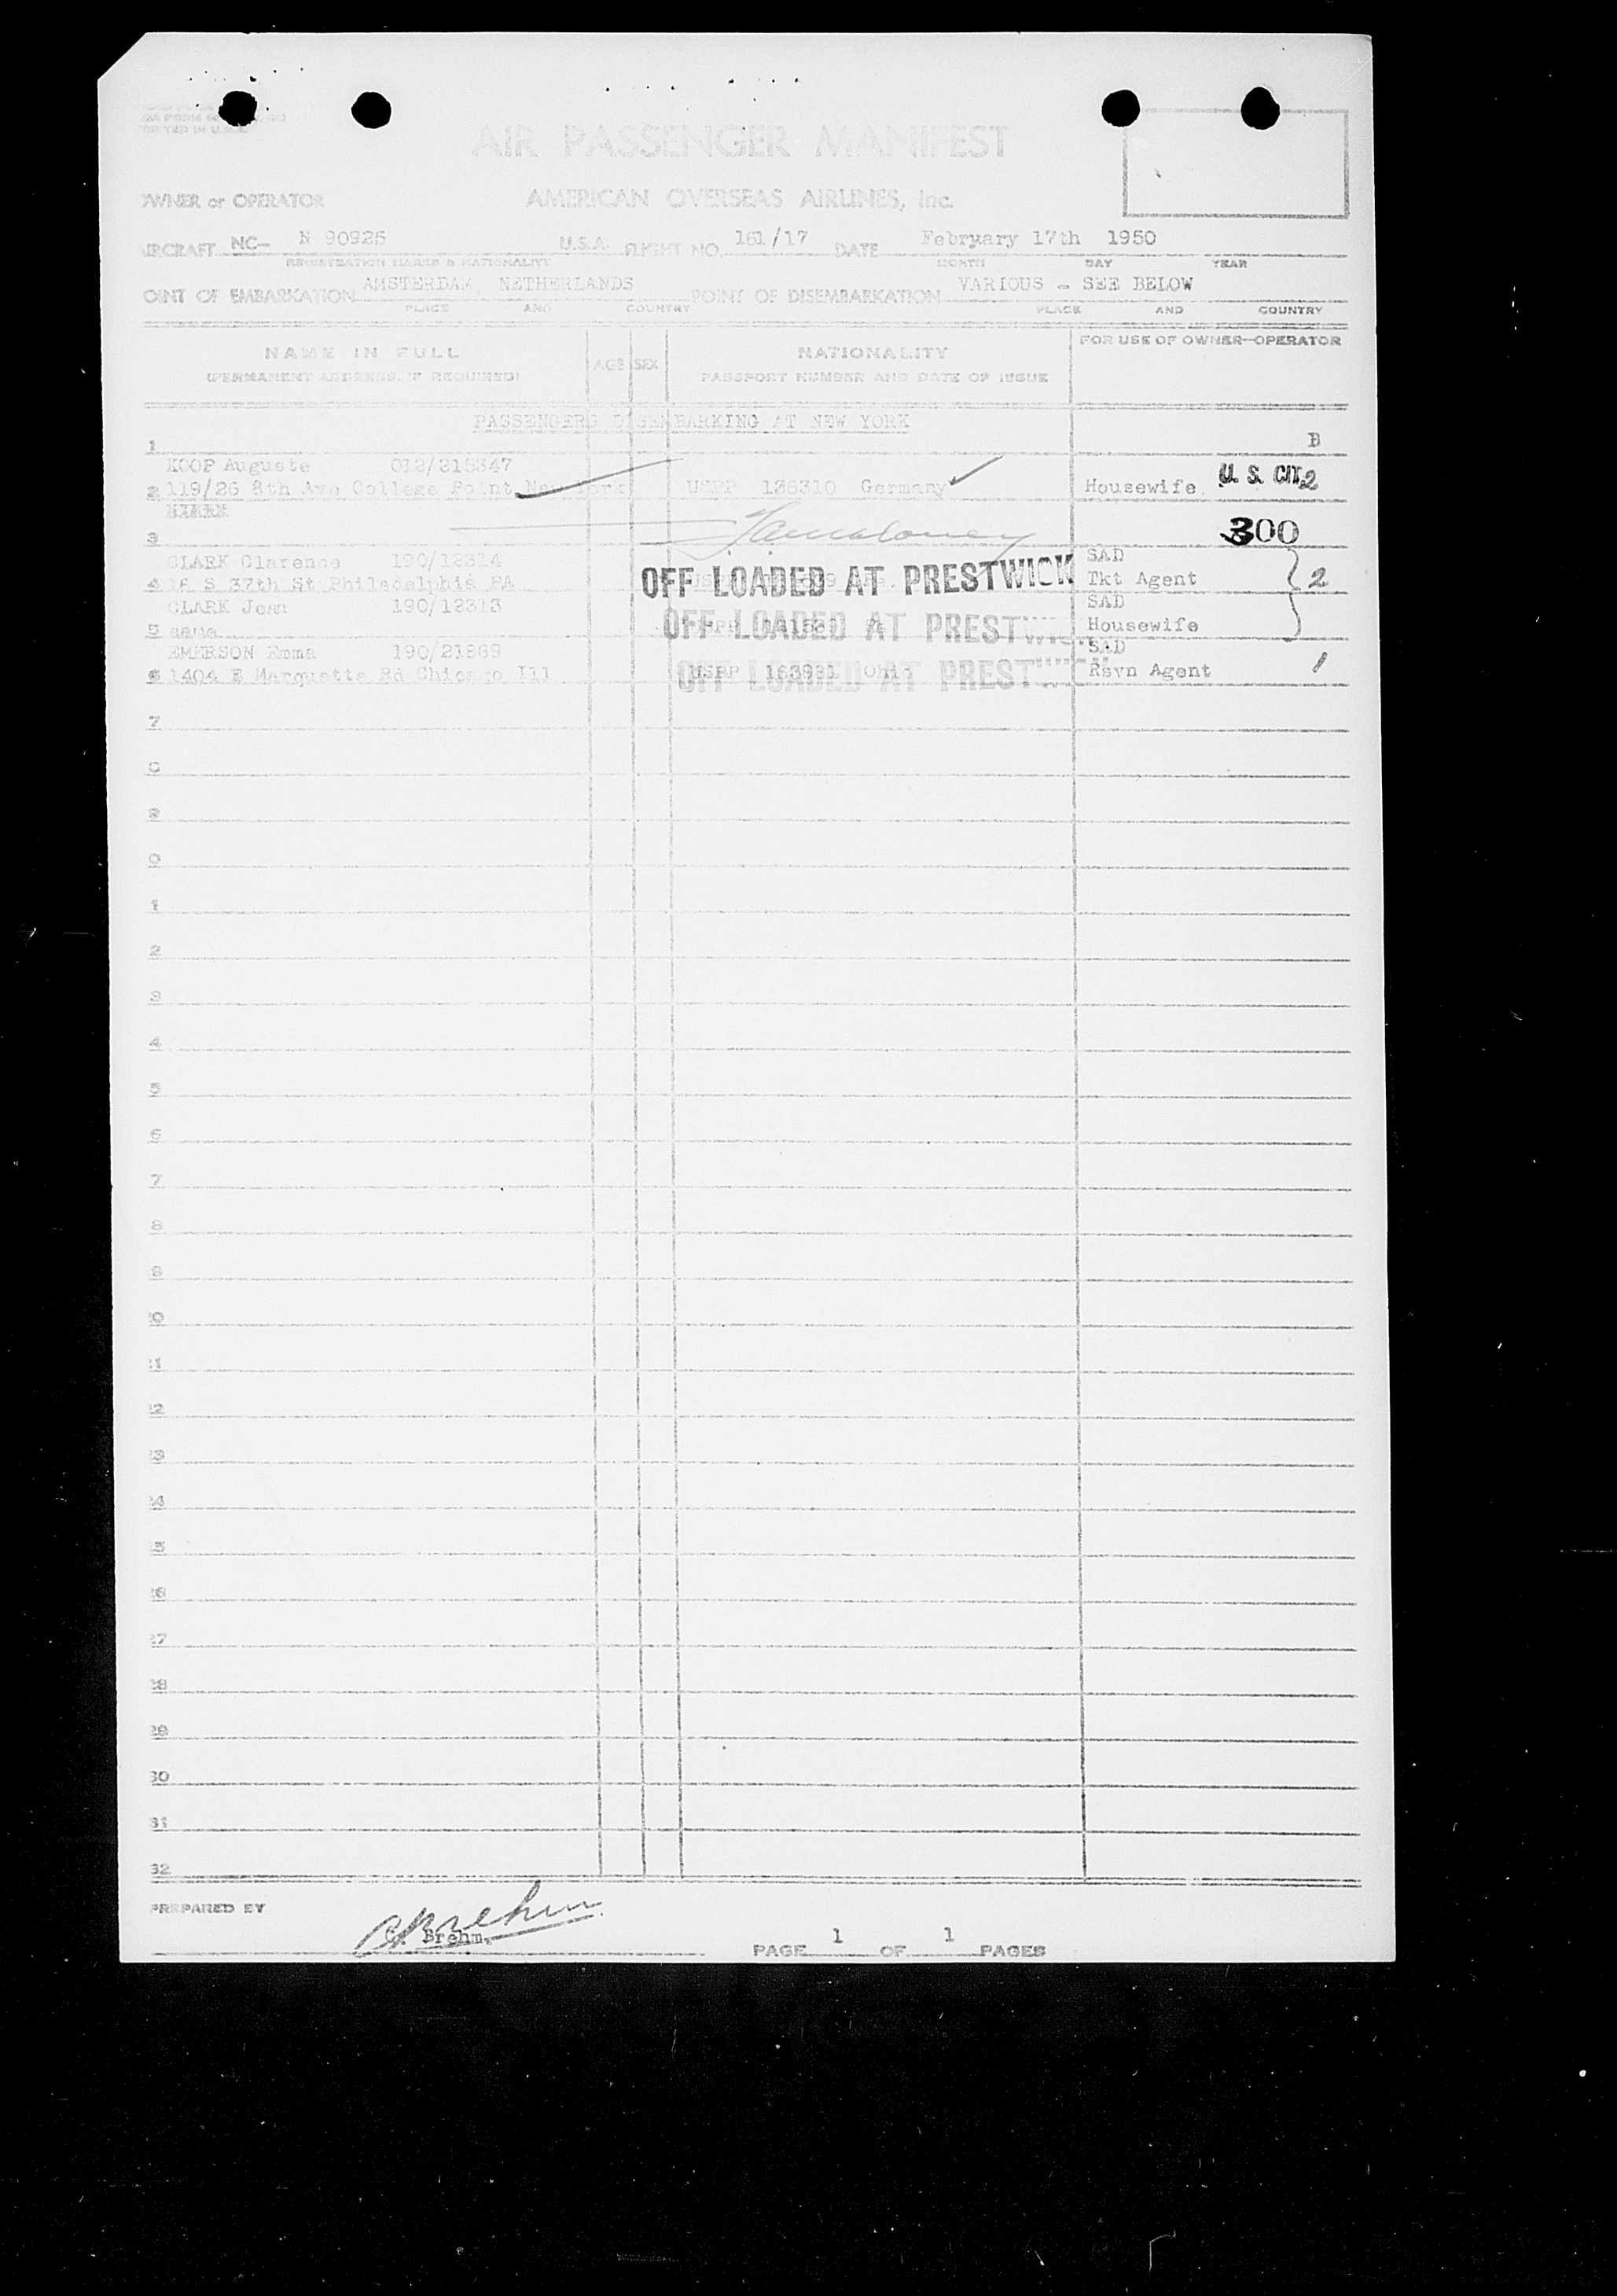 AIR PASSENGER MANIFEST
OWNER or OPERATOR AMERICAN OVERSEAS AIRLINES, Inc.
AIRCRAFT NC- N 90925 U.S.A. FLIGHT NO. 161/17 DATE February 17th 1950
REGISTRATION MARKS & NATIONALITY MONTH DAY YEAR
POINT OF EMBARKATION AMSTERDAM, NETHERLANDS POINT OF DISEMBARKATION VARIOUS - SEE BELOW
PLACE AND COUNTRY PLACE AND COUNTRY
NAME IN FULL AGE SEX NATIONALITY FOR USE OF OWNER-OPERATOR
(PERMANENT ADDRESS, IF REQUIRED) PASSPORT NUMBER AND DATE OF ISSUE
PASSENGERS DISEMBARKING AT NEW YORK
1 B
KOOP Auguste
2 119/26 8th Ave College Point New York USPP 126310 Germany Housewife U. S. CIT. 2
3 300
CLARK Clarence 190/12314 SAD
4 16 S 37th St Philadelphia PA OFF LOADED AT PRESTWICK Tkt Agent 2
CLARK Jean 190/12313 SAD
5 same OFF LOADED AT PRESTWICK Housewife
EMERSON Emma 190/21869 SAD
6 1404 E Marquette Rd Chicago Ill USPP Ohio OFF LOADED AT PRESTWICK Rsvn Agent 1
7
8
9
0
1
2
3
4
5
6
7
8
9
20
21
22
23
24
25
26
27
28
29
30
31
32
PREPARED BY C. Brehm.
PAGE 1 OF 1 PAGES